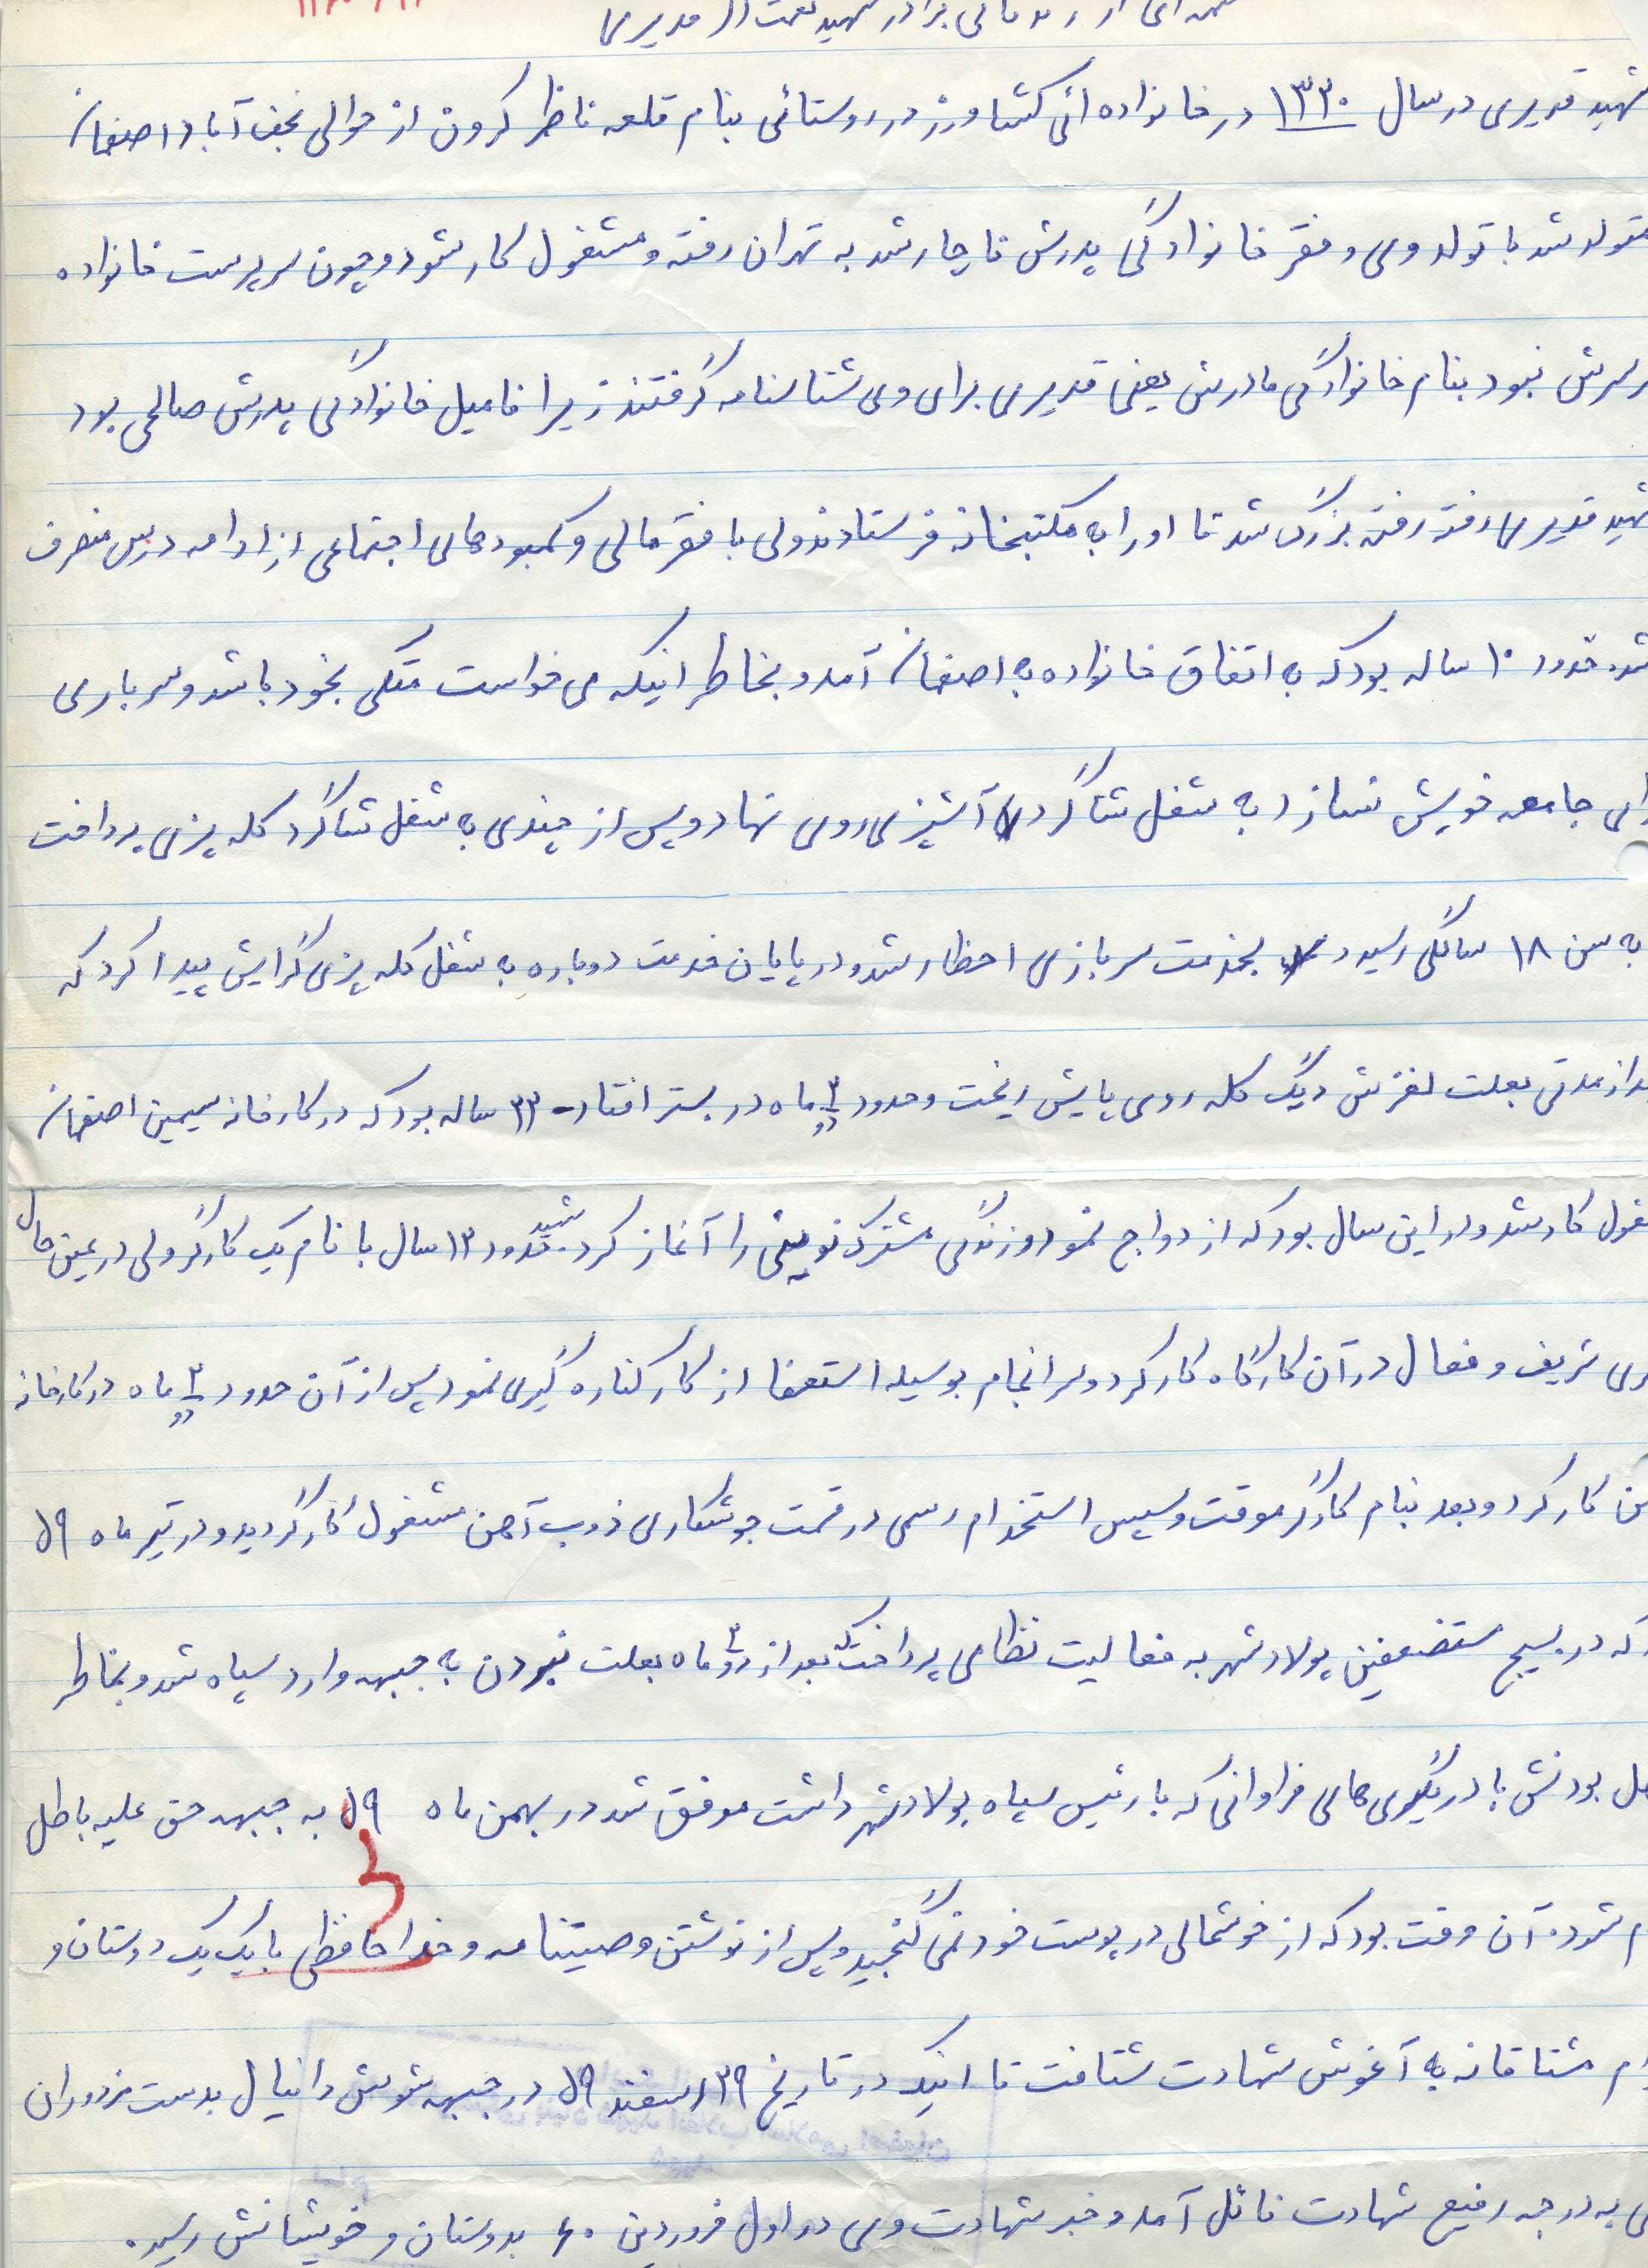 از زندگانی برادر شهید نعمت ا... قدیری
شهید قدیری در سال ۱۳۳۰ در خانواده ائی کشاورز در روستائی بنام قلعه ناظر کرون از حوالی نجف آباد اصفهان
متولد شد با تولد وی و فقر خانوادگی پدرش ناچار شد به تهران رفته و مشغول کار شود و چون سرپرست خانواده
سرش نبود بنام خانوادگی مادرش یعنی قدیری برای وی شناسنامه گرفتند زیرا فامیل خانوادگی پدرش صالحی بود
شهید قدیری رفته رفته بزرگ شد تا او را به مکتبخانه فرستادند ولی با فقر مالی و کمبودهای اجتماعی از ادامه درس منصرف
شد. حدود ۱۰ ساله بود که به اتفاق خانواده به اصفهان آمد و بخاطر اینکه می خواست متکی بخود باشد و سرباری
رای جامعه خویش نسازد به شغل شاگرد آشپزی روی نهاد و پس از چندی به شغل شاگرد کله پزی پرداخت
به سن ۱۸ سالگی رسید و بخدمت سربازی احظار شد و در پایان خدمت دوباره به شغل کله پزی گرایش پیدا کرد که
عد از مدتی بعلت لغزش دیگ کله روی پایش ریخت و حدود ۳ ماه در بستر افتاد - ۲۳ ساله بود که در کارخانه سیمین اصفهان
غول کار شد و در این سال بود که ازدواج نمود و زندگی مشترک نوینی را آغاز کرد. شهید حدود ۱۳ سال با نام یک کارگر ولی در عین حال
ری شریف و فعال در آن کارگاه کار کرد و سرانجام بوسیله استعفا از کار کناره گیری نمود پس از آن حدود ۳ ماه در کارخانه
من کار کرد و بعد بنام کارگر موقت و سپس استخدام رسمی در قسمت جوشکاری ذوب آهن مشغول کار گردید و در تیر ماه ۵۹
د که در بسیج مستضعفین پولادشهر به فعالیت نظامی پرداخت که بعد از ۳ ماه بعلت نبردن به جبهه وارد سپاه شد و بخاطر
هل بودنش با درگیری های فراوانی که با رئیس سپاه پولادشهر داشت موفق شد در بهمن ماه ۵۹ به جبهه حق علیه باطل
م شود. آن وقت بود که از خوشحالی در پوست خود نمی گنجید و پس از نوشتن وصیتنامه و خداحافظی با یک یک دوستان و
ام مشتاقانه به آغوش شهادت شتافت تا اینکه در تاریخ ۲۹ اسفند ۵۹ در جبهه شوش دانیال بدست مزدوران
ی به درجه رفیع شهادت نائل آمد و خبر شهادت وی در اول فروردین ۶۰ بدوستان و خویشانش رسید.